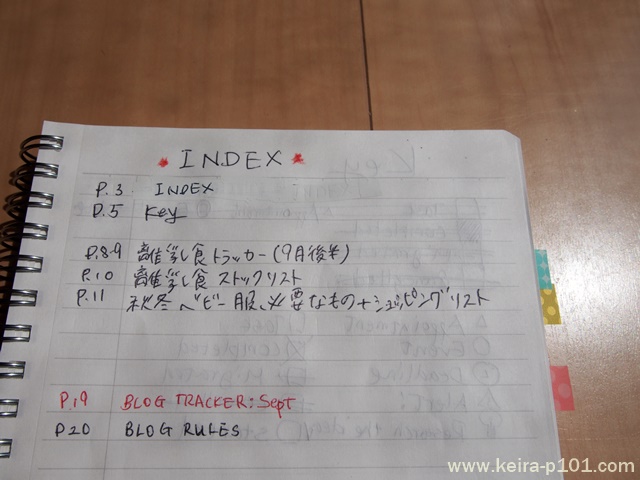 INDEX
P.3 INDEX
P.5 Key
P.8-9 離乳食トラッカー(9月後半)
P.10 離乳食ストックリスト
P.11 秋冬ベビー服、必要なもの+ショッピングリスト
P.19 BLOG TRACKER: Sept
P.20 BLOG RULES
www.keira-p101.com